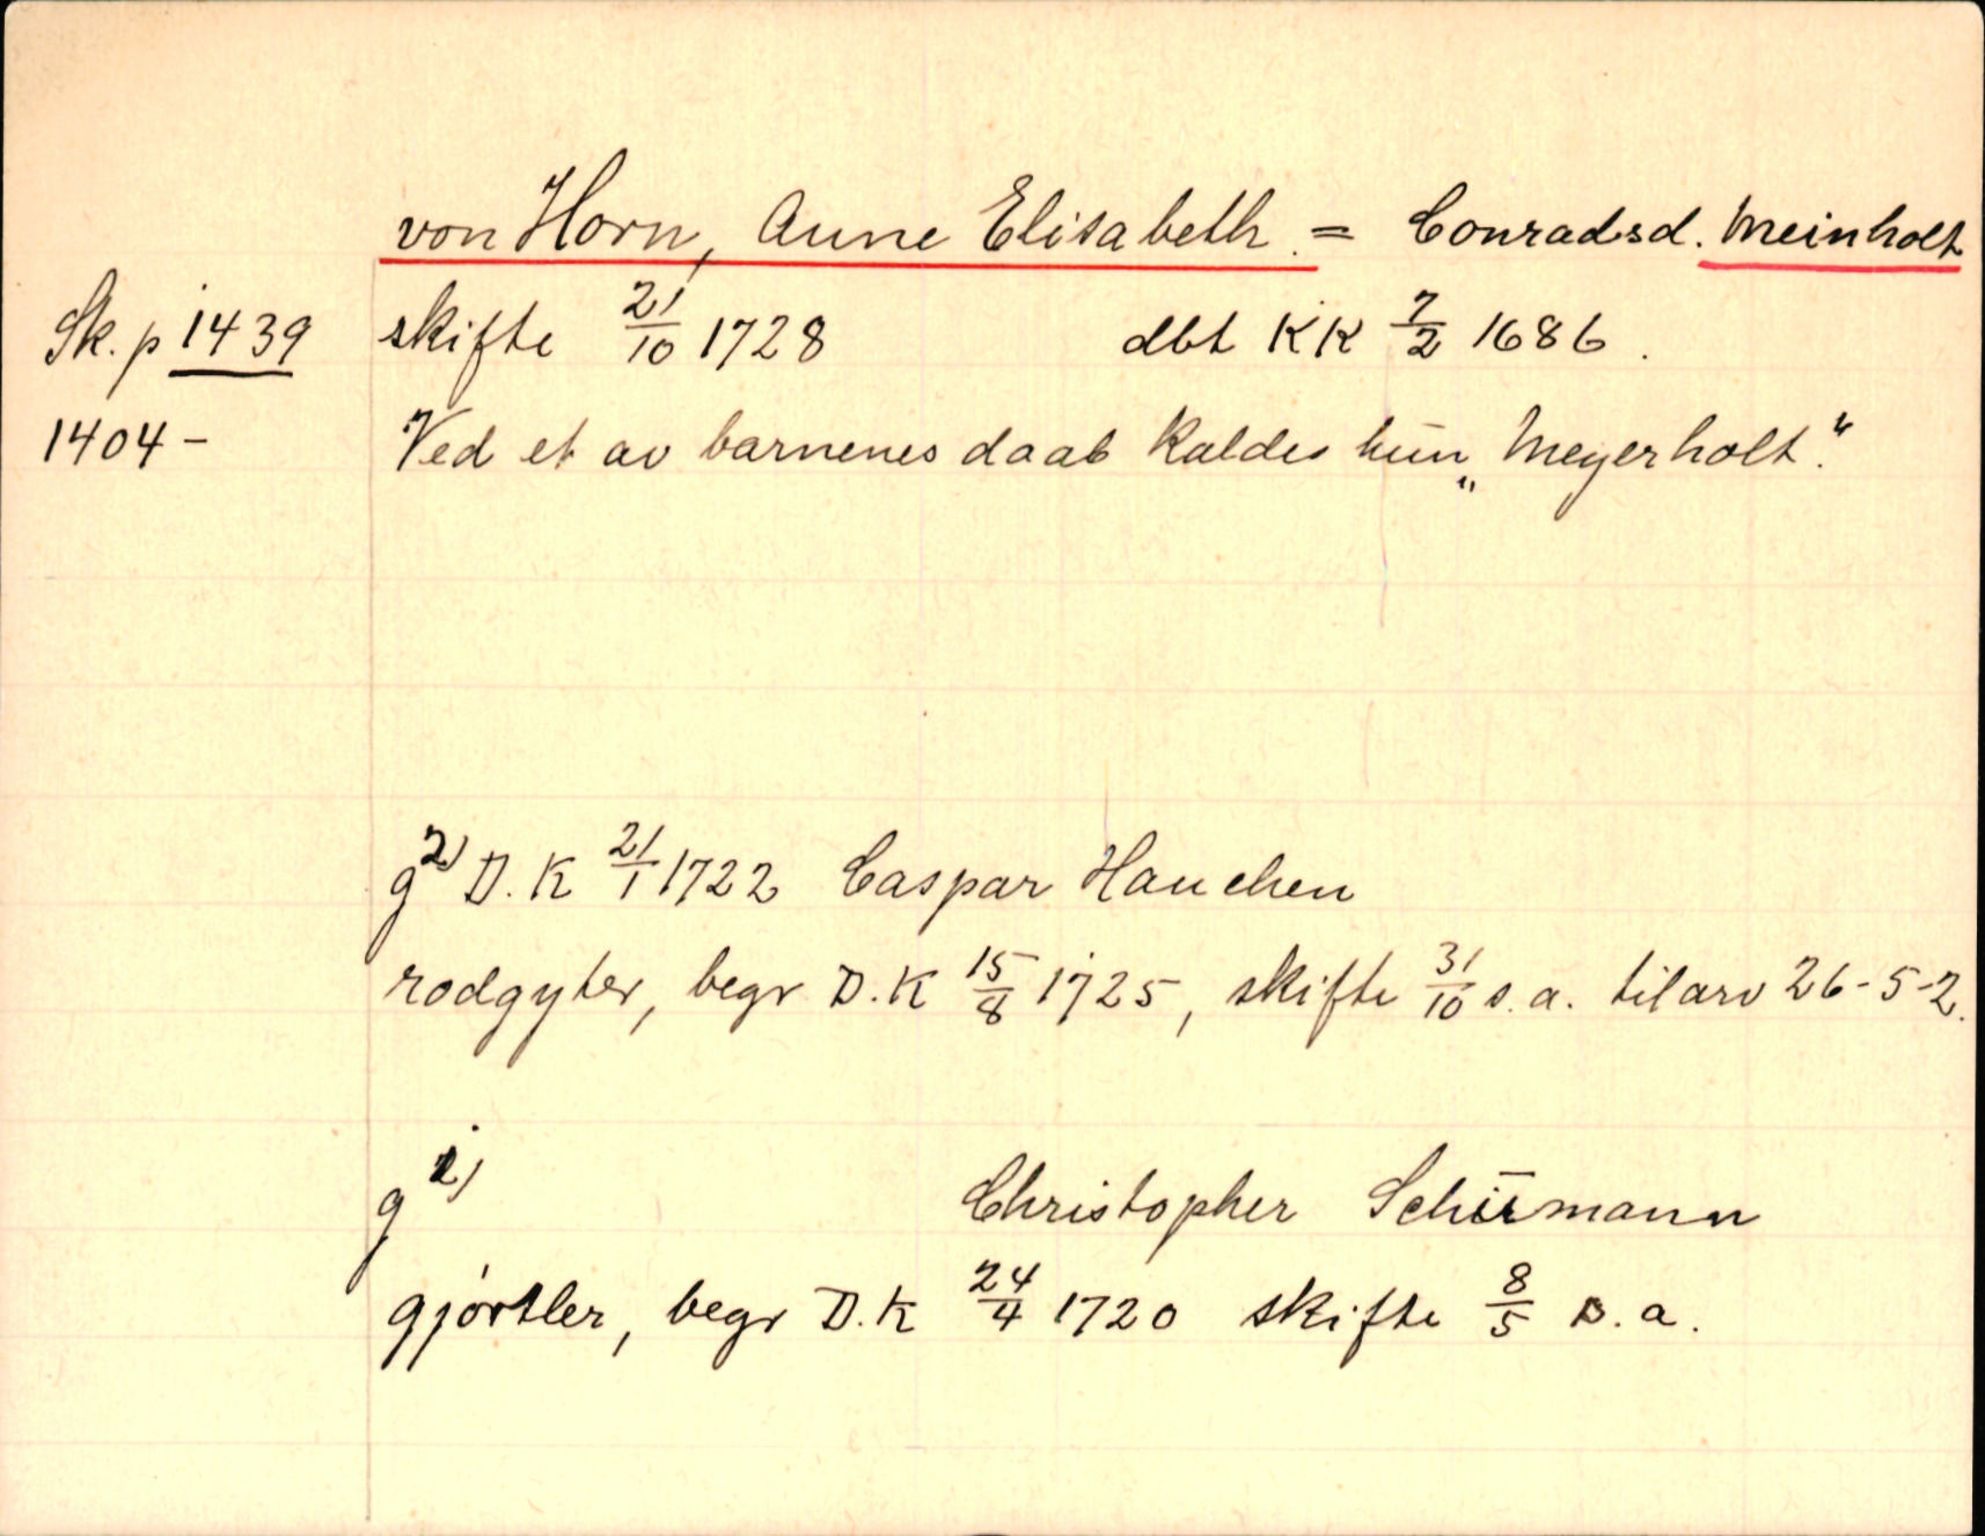 von Horn, Anne Elisabeth. = Conradsd. Meinholt
Sk. p 1439 skifte 21/10 1728 dbt KK 7/2 1686.
1404 - Ved et av barnenes daab kaldes hun „Meyerholt“.
g 2) D.K 21/1 1722 Caspar Hauchen
rodgyter, begr D.K 15/8 1725, skifte 31/10 s.a. til arv 26-5-2.
g 1) Christopher Schürmann
gjørtler, begr D.K 24/4 1720 skifte 8/5 s.a.